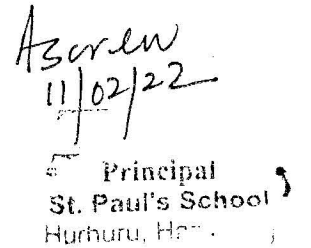 11/02/22
Principal
St. Paul's School
Hurhuru,